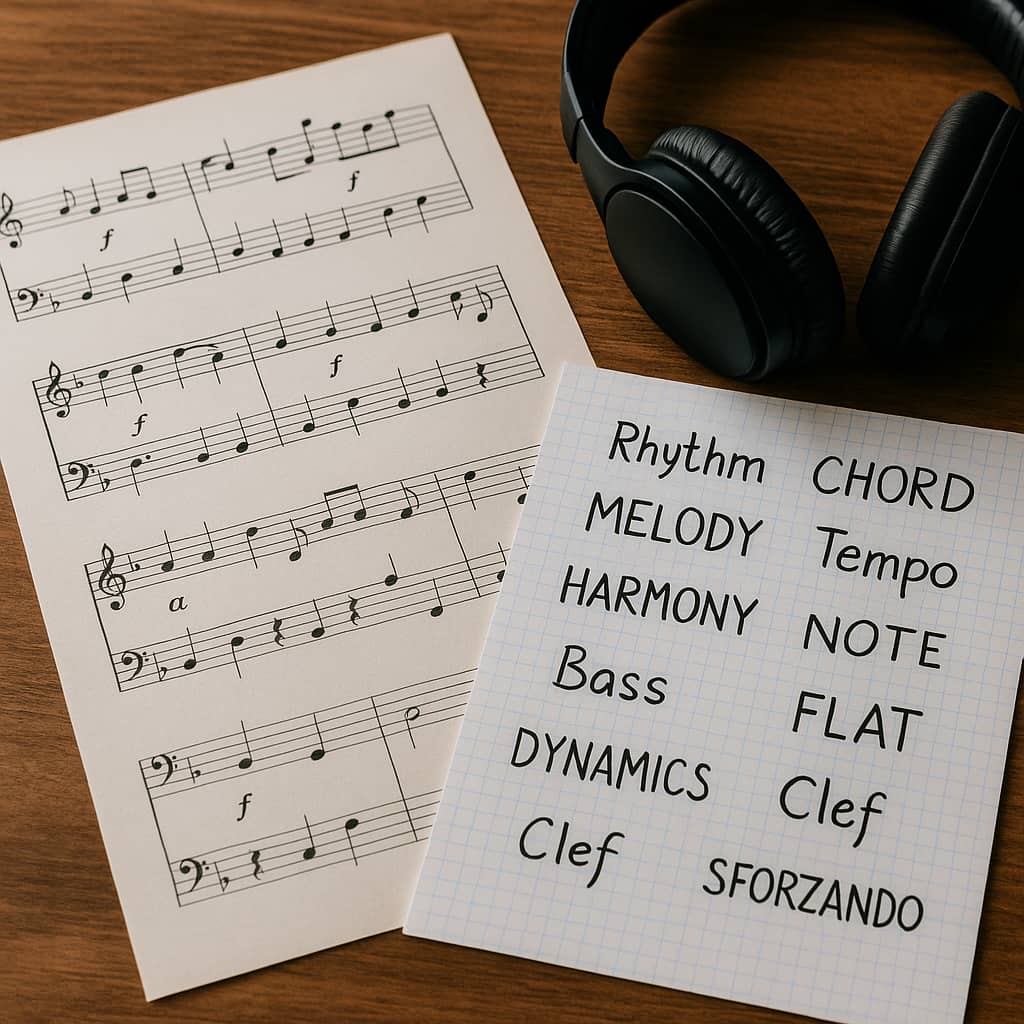 f
f
f
f
a
f
Rhythm CHORD
MELODY Tempo
HARMONY NOTE
Bass FLAT
DYNAMICS Clef
Clef SFORZANDO